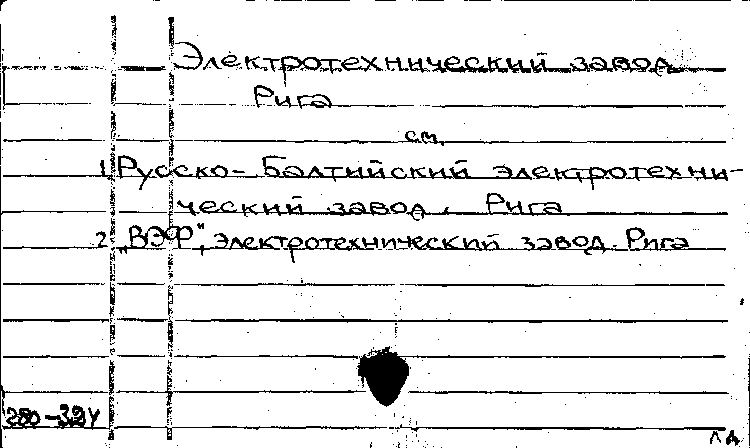 Электротехнический завод
Рига
см.
1. Русско-Балтийский электротехни-
ческий завод. Рига
2. „ВЭФ", электротехнический завод. Рига